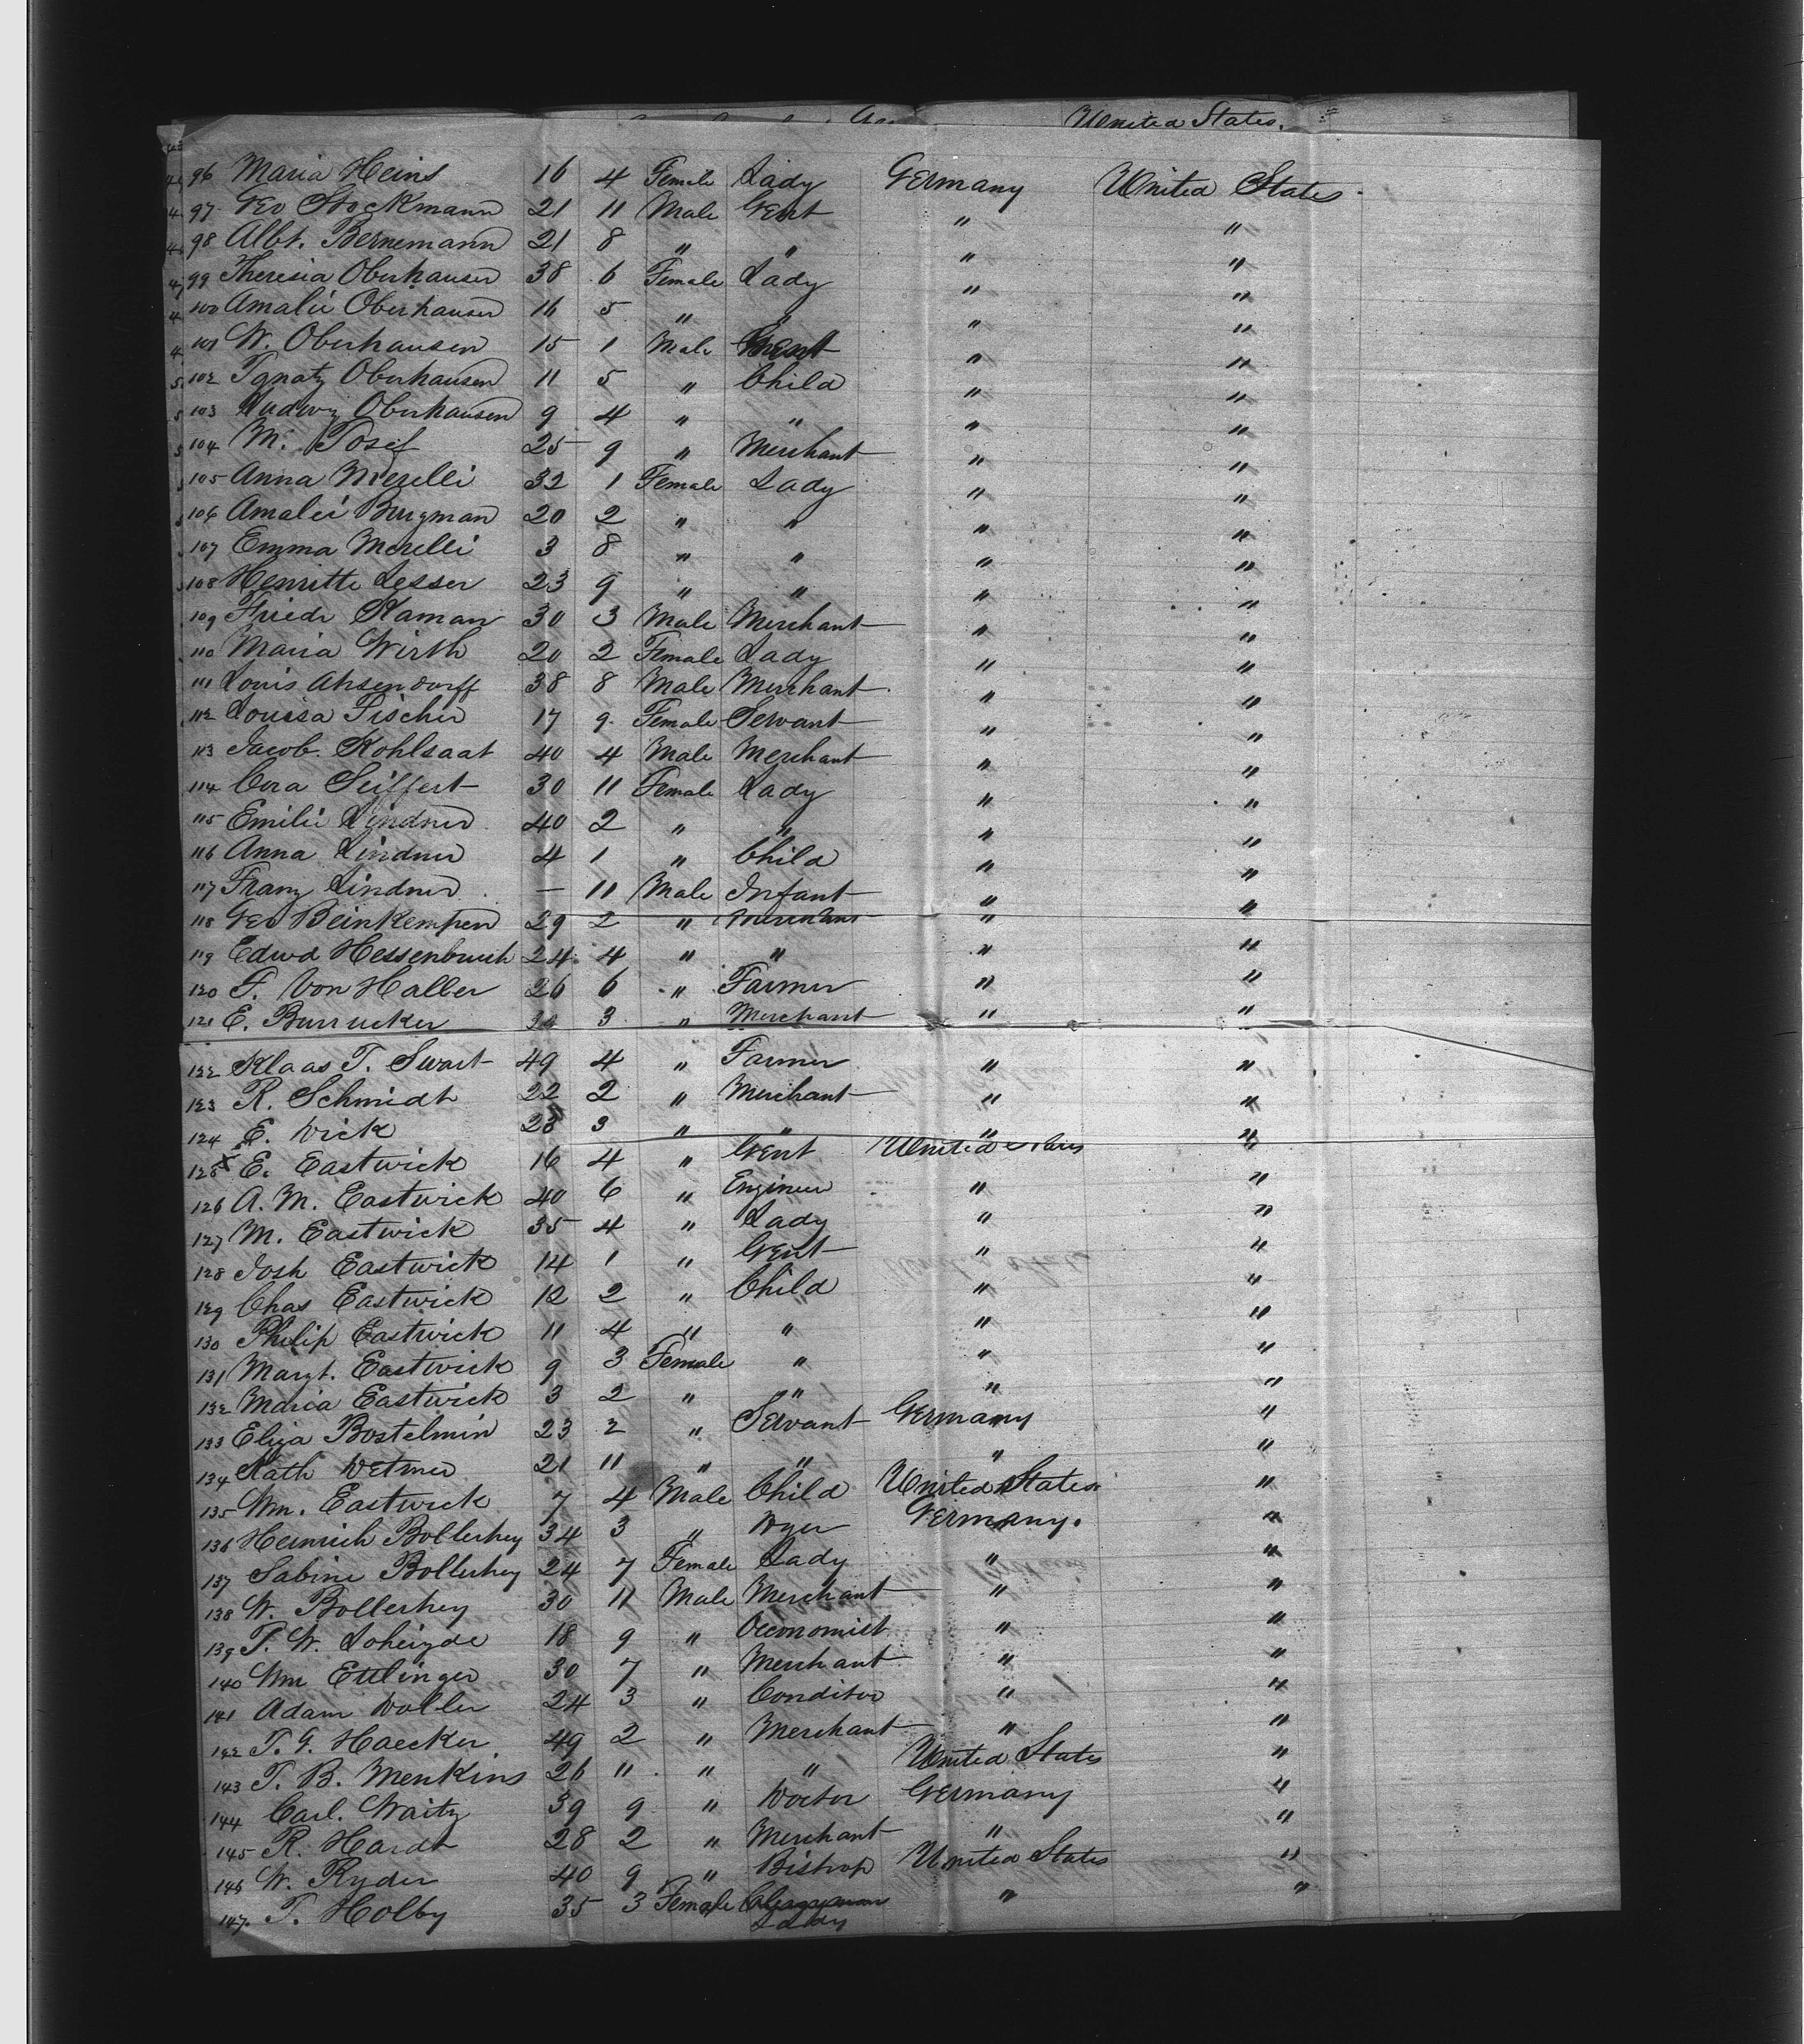 United States.
96 Maria Heins 16 4 Female Lady Germany United States.
97 Geo Stockmann 21 11 Male Gent " "
98 Albt. Bernemann 21 8 " " " "
99 Theresia Oberhauser 38 6 Female Lady " "
100 Amalie Oberhauser 16 5 " " " "
101 W. Oberhausen 15 1 Male Gent " "
102 Ignatz Oberhausen 11 5 " Child " "
103 Ludwig Oberhausen 9 4 " " " "
104 M. Josef 25 9 " Merchant " "
105 Anna Merelli 32 1 Female Lady " "
106 Amalei Bergman 20 2 " " " "
107 Emma Merelli 3 8 " " " "
108 Henritte Lesser 23 9 " " " "
109 Friedr Kaman 30 3 Male Merchant " "
110 Maria Wirth 20 2 Female Lady " "
111 Louis Ahsendorff 38 8 Male Merchant " "
112 Louisa Fischer 17 9 Female Servant " "
113 Jacob Kohlsaat 40 4 Male Merchant " "
114 Cora Seiffert 30 11 Female Lady " "
115 Emilie Lindner 40 2 " " " "
116 Anna Lindner 4 1 " Child " "
117 Franz Lindner — 11 Male Infant " "
118 Geo Beinkempen 29 2 " Merchant " "
119 Edwd Hessenbruch 24 4 " " " "
120 F. Von Haller 26 6 " Farmer " "
121 E. Burrucker 34 3 " Merchant " "
122 Klaas T. Swart 49 4 " Farmer " "
123 R. Schmidt 22 2 " Merchant " "
124 E. Dick 28 3 " " " "
125 x E. Eastwick 16 4 " Gent United States "
126 A. M. Eastwick 40 6 " Engineer " "
127 M. Eastwick 35 4 " Lady " "
128 Josh Eastwick 14 1 " Gent " "
129 Chas Eastwick 12 2 " Child " "
130 Philip Eastwick 11 4 " " " "
131 Margt. Eastwick 9 3 Female " " "
132 Maria Eastwick 3 2 " " " "
133 Eliza Bostelmin 23 2 " Servant Germany "
134 Kath Detmer 21 11 " " " "
135 Wm. Eastwick 7 4 Male Child United States "
136 Heinrich Bollerhey 34 3 " Dyer Germany. "
137 Sabine Bollerhey 24 7 Female Lady " "
138 W. Bollerhey 30 11 Male Merchant " "
139 T. W. Loheyde 18 9 " Oeconomist " "
140 Wm Ettlinger 30 7 " Merchant " "
141 Adam Doller 24 3 " Conditor " "
142 T. G. Haecker 49 2 " Merchant " "
143 T. B. Menkins 26 11 " " United States "
144 Carl. Waitz 39 9 " Doctor Germany "
145 R. Hardt 28 2 " Merchant " "
146 W. Ryder 40 9 " Bishop United States "
147. T. Holby 35 3 Female Clergyman " "
Lady